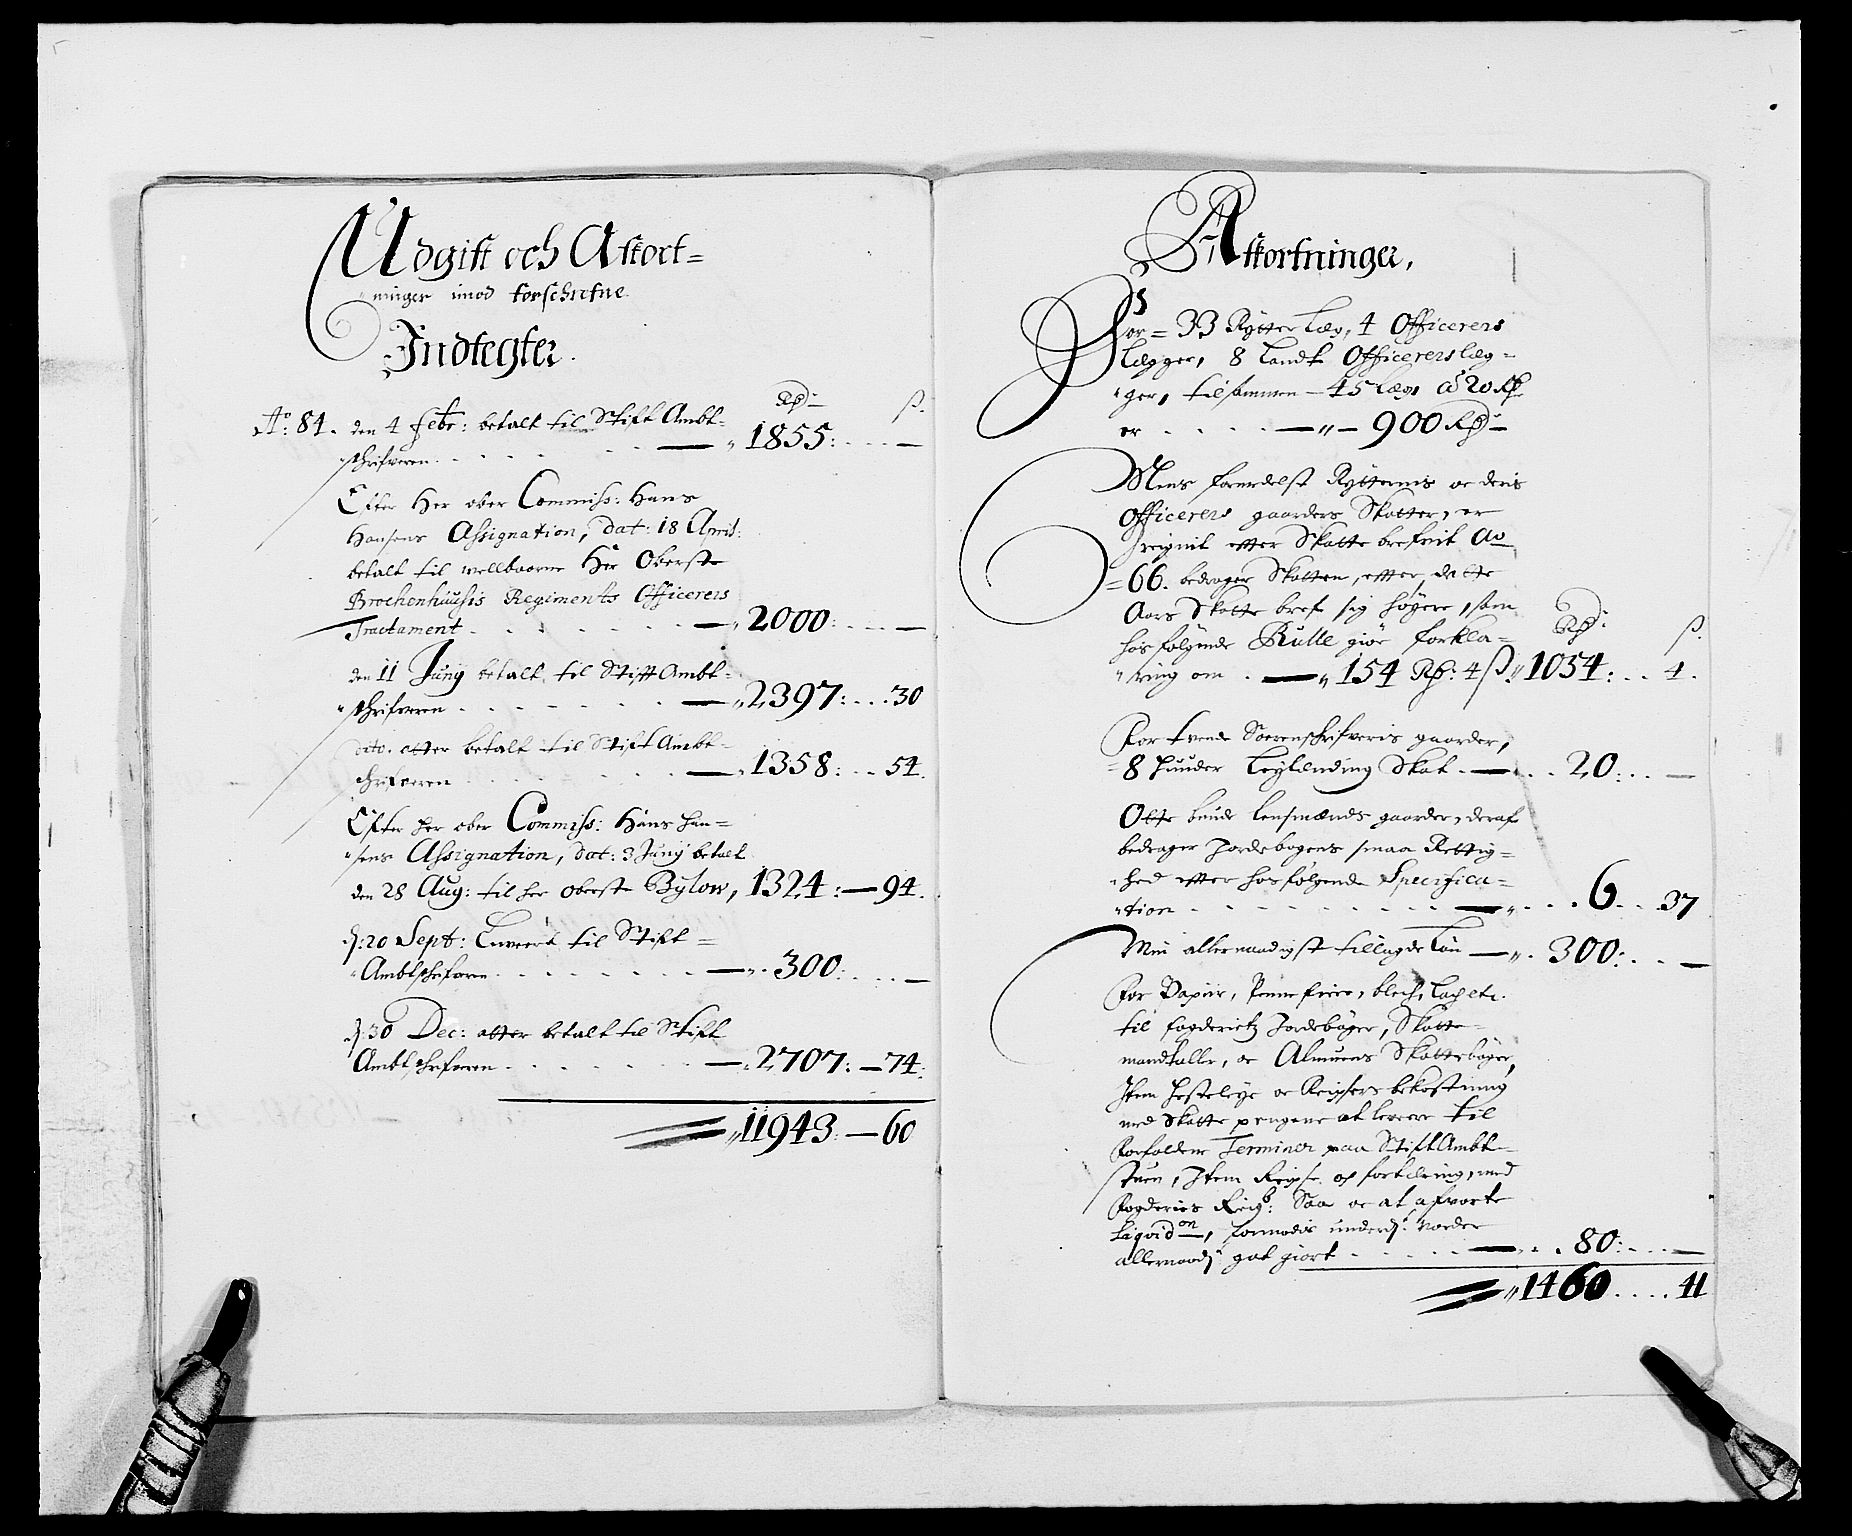 Udgift och Afkort=
ninger imod forschrefne
Indtegter.
Rdr: ß.
Ao: 84. den 4 febr: betalt til Stift Ambt-
schrifveren. . . . — 1855: . . . —
Efter Her ober Commiss: Hans
Hansens Assignation, dat: 18 April:
betalt til wellbaarne Her Oberste
Brochenhuusis Regiments Officerers
Tractament . . . . — 2000: . . . —
den 11 Juny betalt til Stift Ambt-
schrifveren . . . . — 2397: . . . 30
dito. atter betalt til Stift Ambt-
schrifveren . . . . — 1358: . . . 54.
Efter her ober Commiss: Hans Han=
sens Assignation, dat: 3 Juny betalt
den 28 Aug: til her Oberste Bylow, 1324: — 94.
d: 20 Sept: Lewert til Stift=
Ambtschrifveren . . . . — 300: . . . —
d: 30 Dec: atter betalt til Stift
Ambtschrifveren . . . . — 2707: — 74:
11943: — 60
Afkortninger,
For= 33 Rytter Læg, 4 Officerers
Lægger, 8 Landt Officerers læg=
ger, tilsammen — 45 Læg a 20 Rdr
er . . . . — „ — 900 Rdr —
Mens formedelst Rytternis oc deris
Officerers gaarders Skatter, er
Ao
=66. bedrager Skatten, efter dette
Aars Skatte bref sig høgere, som
Rdr: ß.
hosfølgende Rulle giør forkla=
ring om . — 154 Rdr: 4 ß. 1054: . . 4.
For tvende Soerenschrifveris gaarder,
8 Punder Leylending Skat . — . . 20: . . —
Otte bunde Lensmænds gaarder, deraf
bedrager Jordebogens smaa Rettig=
hed efter hosfølgende Specifica=
tion . . . . — . . . 6 . . 37
Min allernaadigst tillagde Løn — „ . 300: . . —
For Papiir, Penne fiere, blech, Lach etc.
til fogderietz Jordebøger, Skatte-
mandtaller, oc Almuens Skattebøger,
Item Hesteleye oc Reipsers bekostning
med Skatte pengene at levere til
Forfaldne Terminer paa Stift Ambt-
stuen, Item Reipse och fortæring, med
Fogderies Regb: Saa oc at afvarte
Liqvidon,
allernaad: got giort . . . . — . . . 80: . . . —
1460 . . . . 41